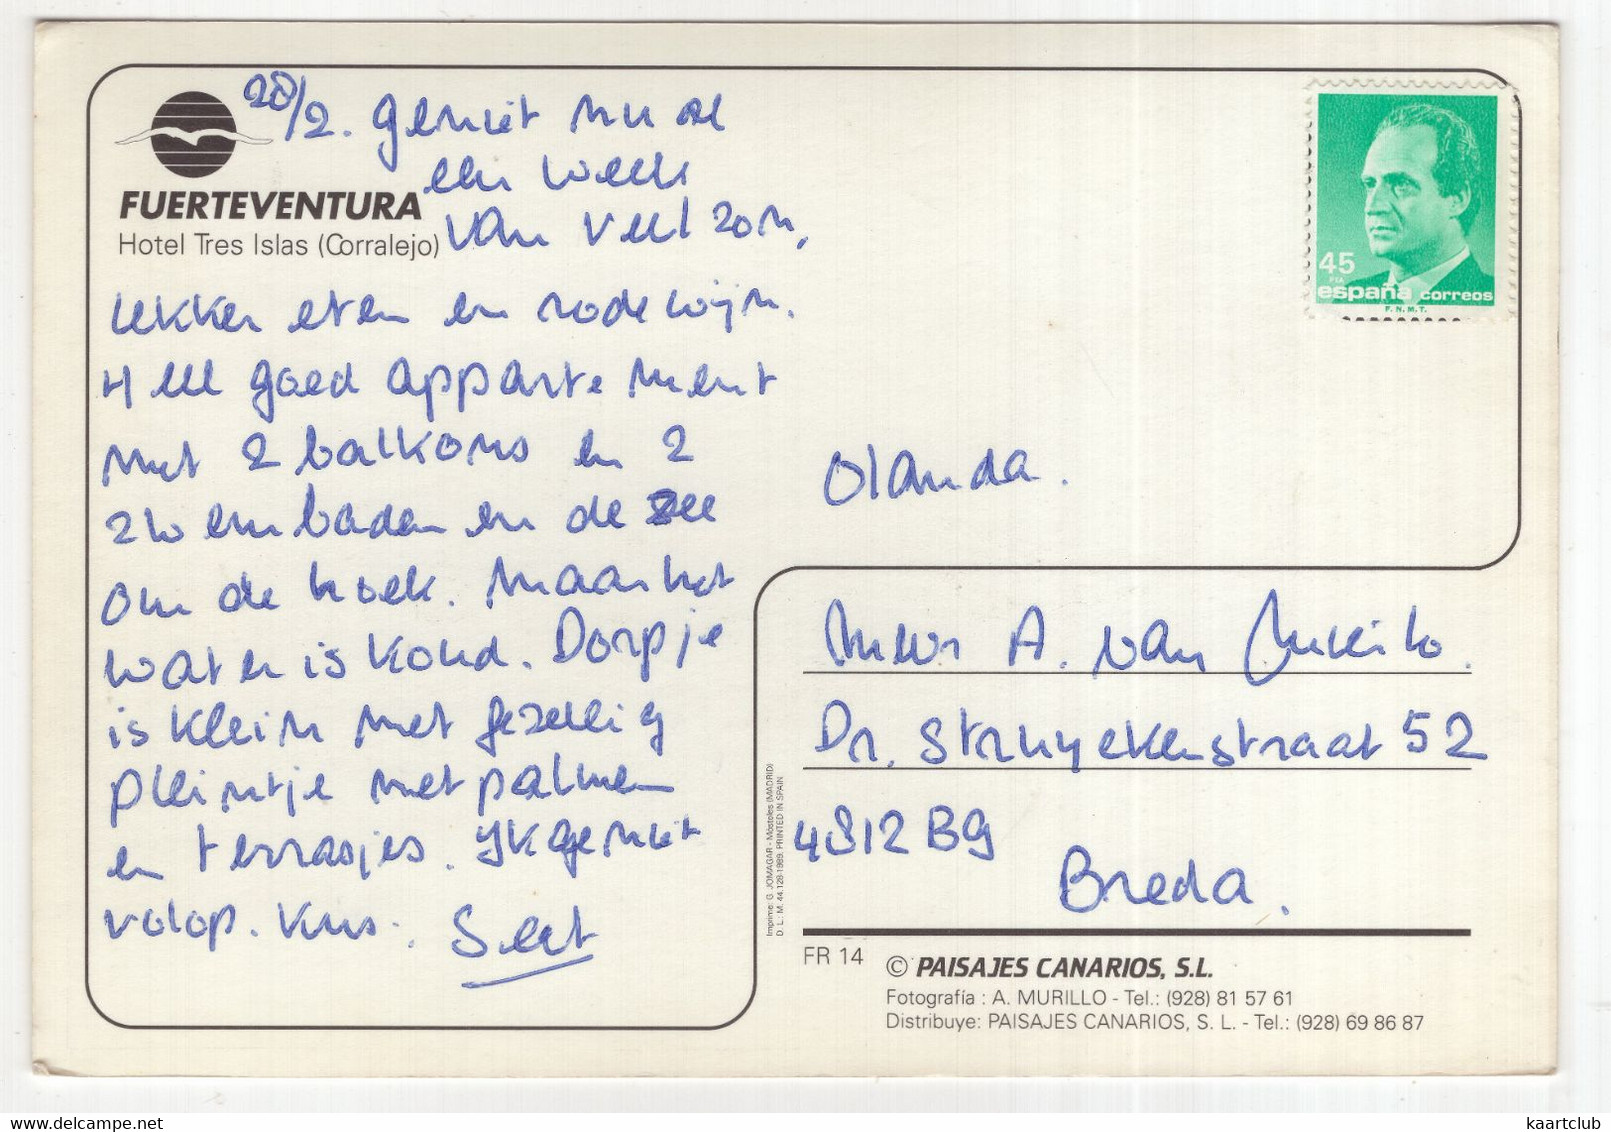 28/2. geniet nu al
een week
van veel zon,
lekker eten en rode wijn.
Heel goed appartement
met 2 balkons en 2
zwembaden en de zee
om de hoek. Maar het
water is koud. Dorpje
is klein met gezellig
pleintje met palmen
en terrasjes. Ik geniet
volop. Kus.
FUERTEVENTURA
Hotel Tres Islas (Corralejo)
45
PTA
españa correos
F.N.M.T.
Olanda.
Mevr A. van
Dr. Struyckenstraat 52
4812 BG
Breda.
Imprime: G. JOMAGAR - Móstoles (MADRID)
D. L.: M. 44.128-1989. PRINTED IN SPAIN
FR 14
© PAISAJES CANARIOS, S.L.
Fotografía : A. MURILLO - Tel.: (928) 81 57 61
Distribuye: PAISAJES CANARIOS, S. L. - Tel.: (928) 69 86 87
www.delcampe.net
kaartclub